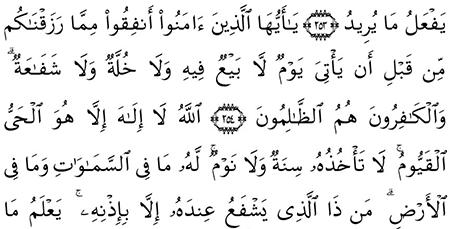 يَفْعَلُ مَا يُرِيدُ ﴿٢٥٣﴾ يَـٰٓأَيُّهَا ٱلَّذِينَ ءَامَنُوٓا۟ أَنفِقُوا۟ مِمَّا رَزَقْنَـٰكُم
مِّن قَبْلِ أَن يَأْتِىَ يَوْمٌ لَّا بَيْعٌ فِيهِ وَلَا خُلَّةٌ وَلَا شَفَـٰعَةٌ ۗ
وَٱلْكَـٰفِرُونَ هُمُ ٱلظَّـٰلِمُونَ ﴿٢٥٤﴾ ٱللَّهُ لَآ إِلَـٰهَ إِلَّا هُوَ ٱلْحَىُّ
ٱلْقَيُّومُ ۚ لَا تَأْخُذُهُۥ سِنَةٌ وَلَا نَوْمٌ ۚ لَّهُۥ مَا فِى ٱلسَّمَـٰوَٰتِ وَمَا فِى
ٱلْأَرْضِ ۗ مَن ذَا ٱلَّذِى يَشْفَعُ عِندَهُۥٓ إِلَّا بِإِذْنِهِۦ ۚ يَعْلَمُ مَا